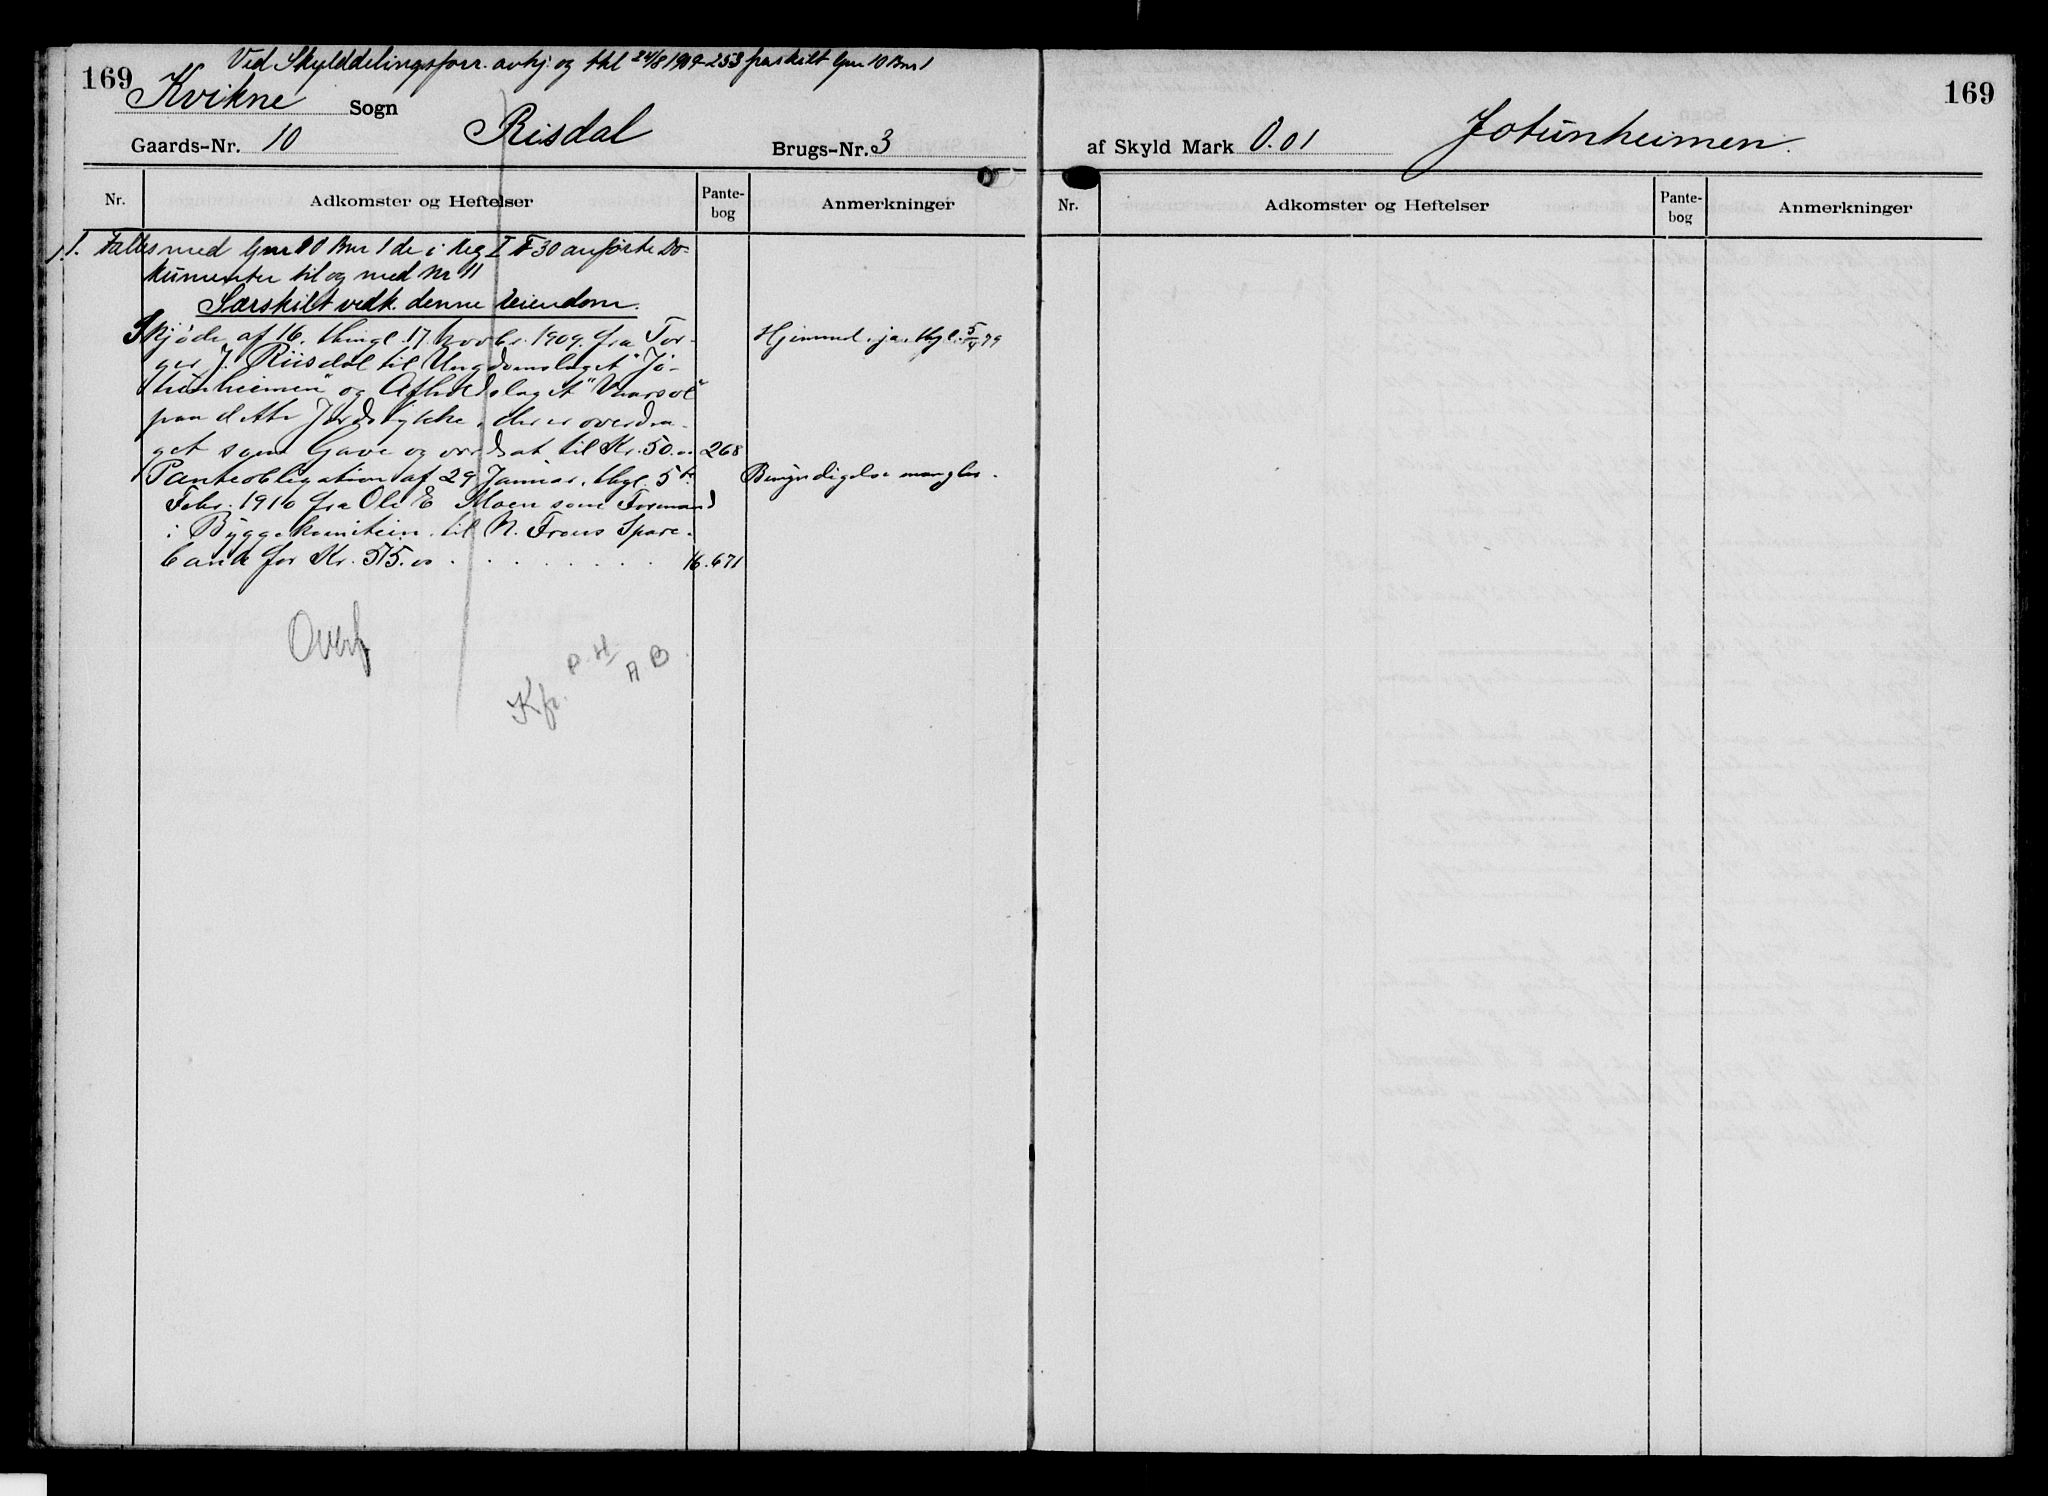 Ved Skylddelingsforr. avhj. og thl 24/8 1909-253 fraskilt Gnr 10 Bnr 1
169
Kvikne Sogn
Gaards-Nr. 10 Risdal Brugs-Nr. 3
Nr. Adkomster og Heftelser Pante-bog Anmerkninger
1. Fælles med Gnr 10 Bnr 1 de i Reg I F 30 anførte Do-
kumenter til og med Nr 11
Særskilt vedk. denne Eiendom.
Skjøde af 16. thingl. 17. Novbr. 1909. fra Tor-
ger J. Riisdal til Ungdomslaget "Jo-
tunheimen" og Afholdslaget "Vaarsol"
paa dette Jordstykke, der er overdra-
get som Gave og værdsat til Kr. 50.00 268
Hjemmel. ja. thgl. 5/4 79
Panteobligation af 29 Januar, thgl. 5te
Febr. 1910 fra Ole E Moen som Formand
i Byggekomiteen til N. Frons Spare-
bank for Kr. 575.00 . . . . . . . . 16.671
Bemyndigelse mangler.
Overf
Kfr. P. H.
A B
169
af Skyld Mark 0.01 Jotunheimen.
Nr. Adkomster og Heftelser Pante-bog Anmerkninger